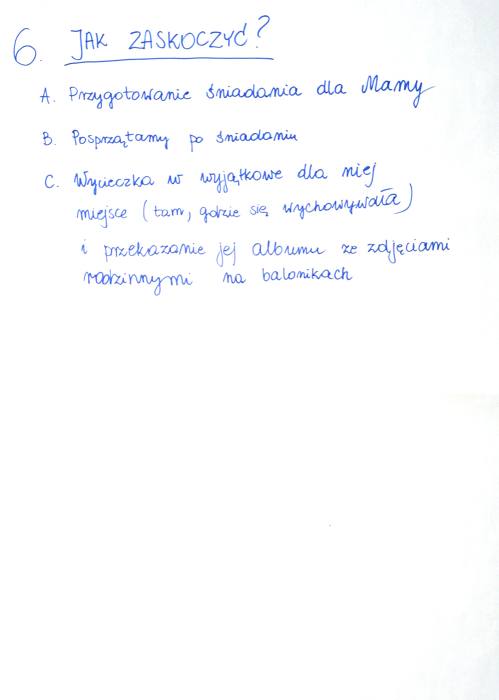 6. JAK ZASKOCZYĆ?
A. Przygotowanie śniadania dla Mamy
B. Posprzątamy po śniadaniu
C. Wycieczka w wyjątkowe dla niej
miejsce (tam, gdzie się wychowywała)
i przekazanie jej albumu ze zdjęciami
rodzinnymi na balonikach